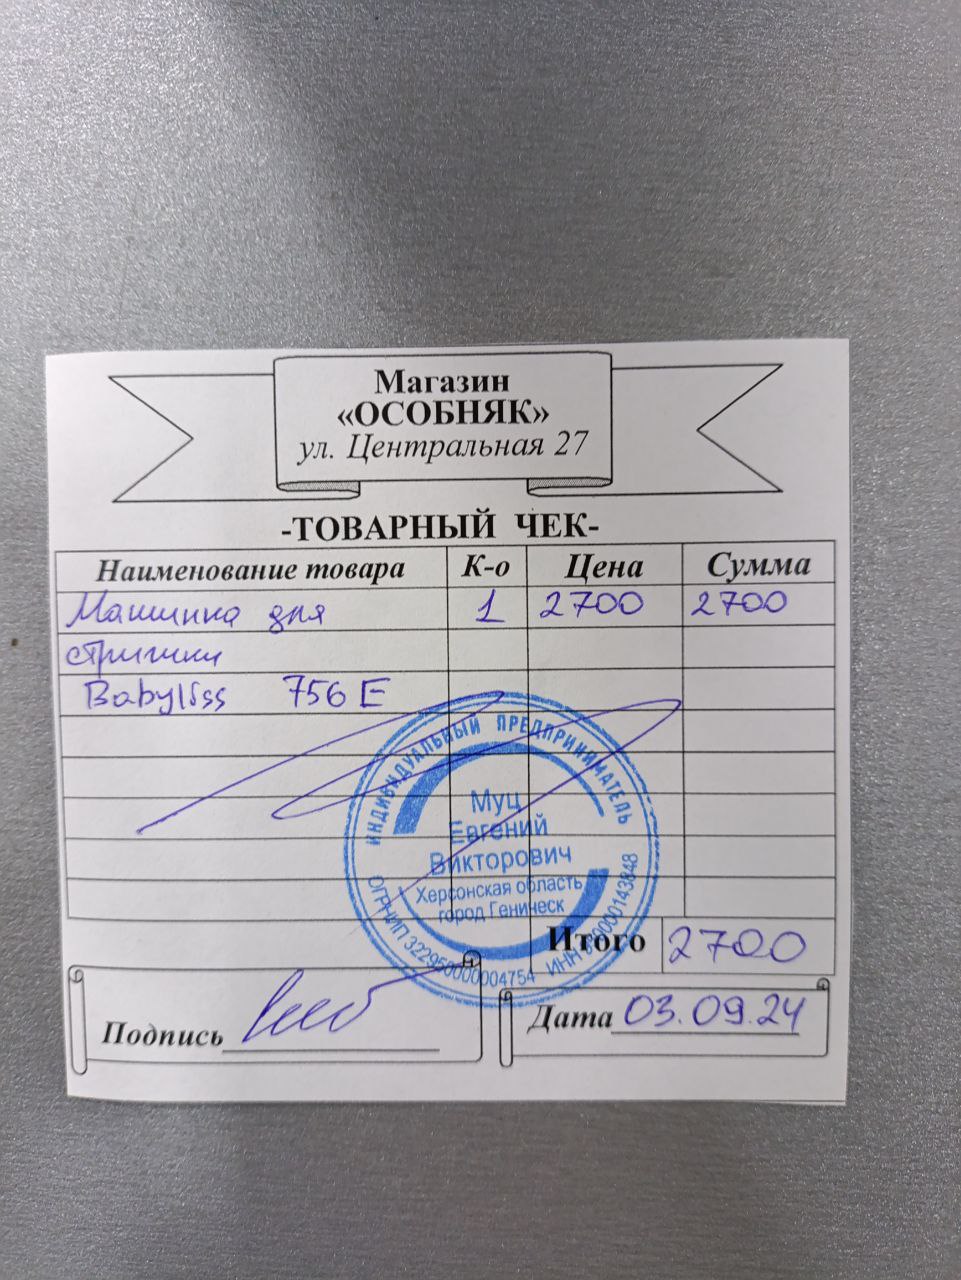 Магазин
«ОСОБНЯК»
ул. Центральная 27
-ТОВАРНЫЙ ЧЕК-
Наименование товара К-о Цена Сумма
Машинка для 1 2700 2700
стрижки
Babyliss 756E
ИНДИВИДУАЛЬНЫЙ ПРЕДПРИНИМАТЕЛЬ
Муц
Евгений
Викторович
Херсонская область
город Геническ
ОГРНИП 322950000004754 ИНН
Итого 2700
Подпись
Дата 03.09.24